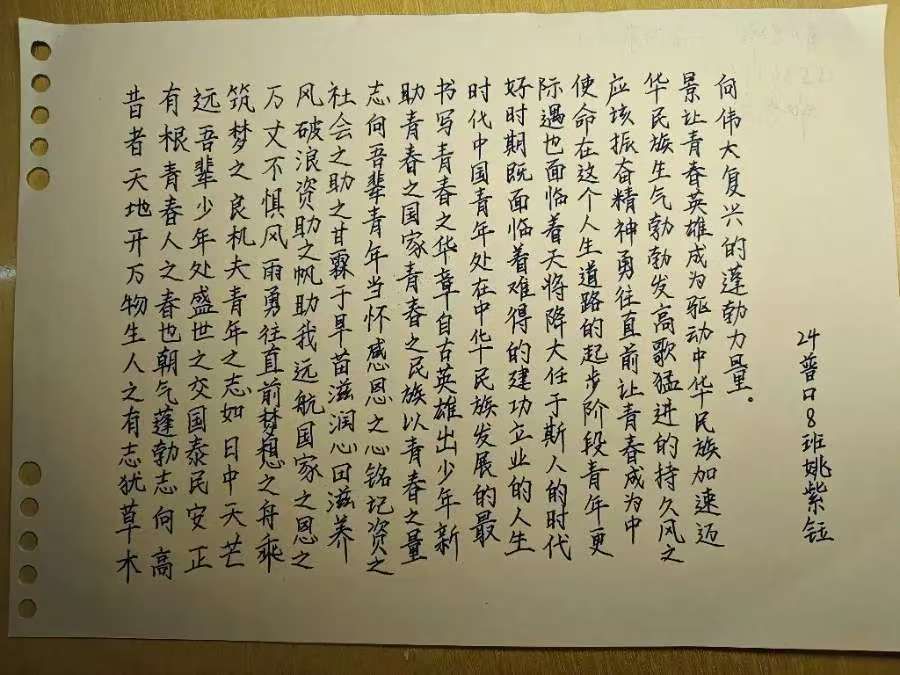 昔者天地开万物生人之有志犹草木
有根青春人之春也朝气蓬勃志向高
远吾辈少年处盛世之交国泰民安正
筑梦之良机夫青年之志如日中天芒
万丈不惧风雨勇往直前梦想之舟乘
风破浪资助之帆助我远航国家之恩之
社会之助之甘霖于旱苗滋润心田滋养
志向吾辈青年当怀感恩之心铭记资之
助青春之国家青春之民族以青春之量
书写青春之华章自古英雄出少年新
时代中国青年处在中华民族发展的最
好时期既面临着难得的建功立业的人生
际遇也面临着天将降大任于斯人的时代
使命在这个人生道路的起步阶段青年更
应该振奋精神勇往直前让青春成为中
华民族生气勃勃发高歌猛进的持久风之
景让青春英雄成为驱动中华民族加速迈
向伟大复兴的蓬勃力量。
24普口8班姚紫钰